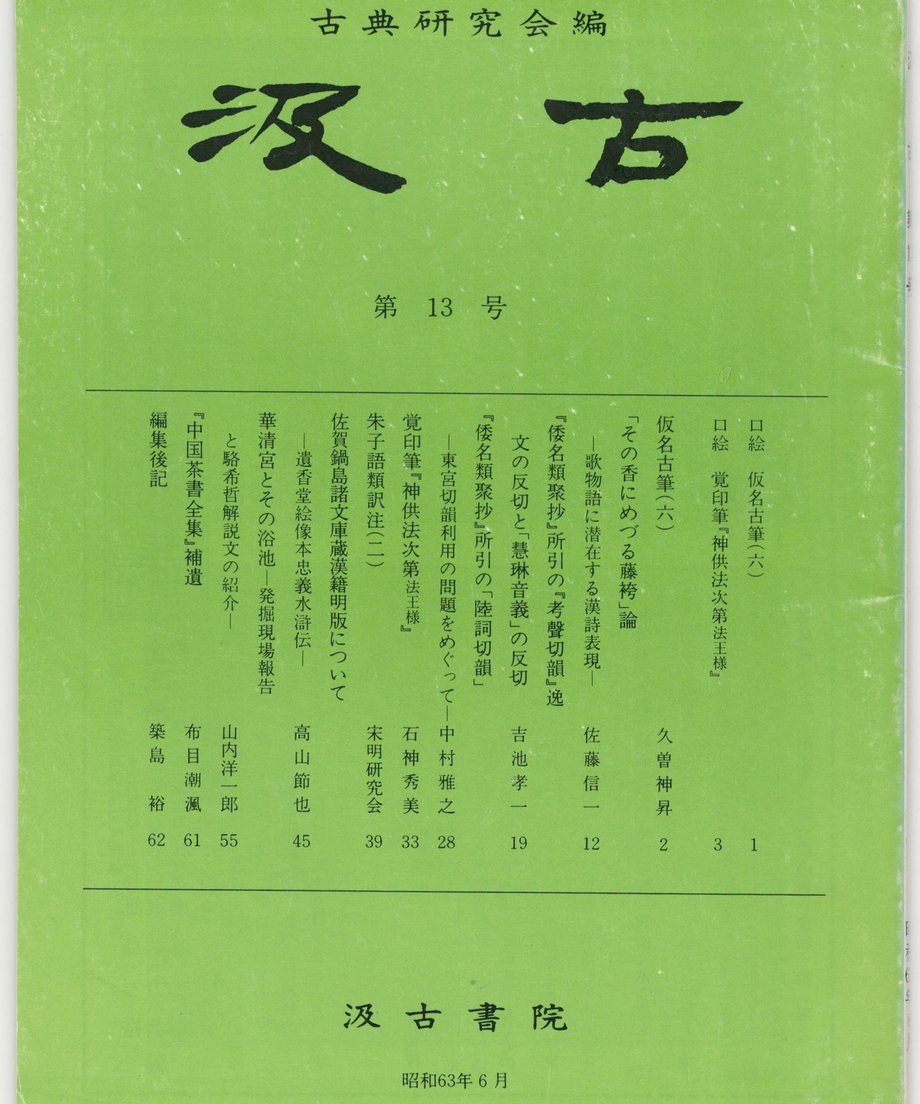 古典研究会編
汲古
第 13 号
口絵 仮名古筆(六) 1
口絵 覚印筆『神供法次第法王様』 3
仮名古筆(六) 久曽神昇 2
「その香にめづる藤袴」論
―歌物語に潜在する漢詩表現― 佐藤信一 12
『倭名類聚抄』所引の『考聲切韻』逸
文の反切と「慧琳音義」の反切 吉池孝一 19
『倭名類聚抄』所引の「陸詞切韻」
―東宮切韻利用の問題をめぐって― 中村雅之 28
覚印筆『神供法次第法王様』 石神秀美 33
朱子語類訳注(二) 宋明研究会 39
佐賀鍋島諸文庫蔵漢籍明版について
―遺香堂絵像本忠義水滸伝― 高山節也 45
華清宮とその浴池―発掘現場報告
と駱希哲解説文の紹介― 山内洋一郎 55
『中国茶書全集』補遺 布目潮渢 61
編集後記 築島裕 62
汲古書院
昭和63年6月